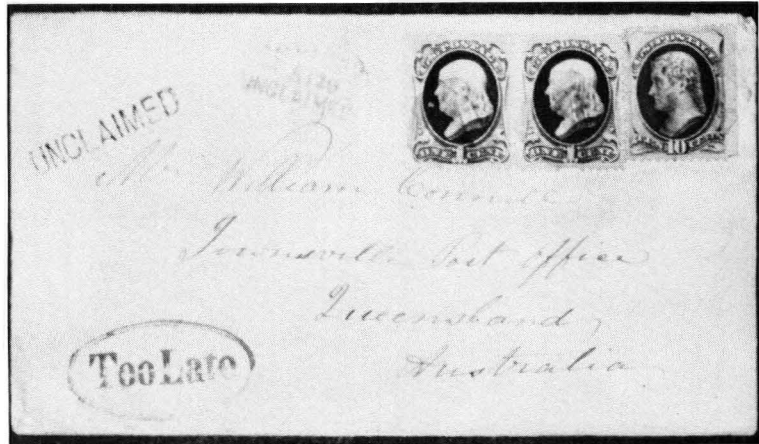 UNCLAIMED
UNCLAIMED
10
Mr William
Townsville Post Office
Queensland
Australia
Too Late